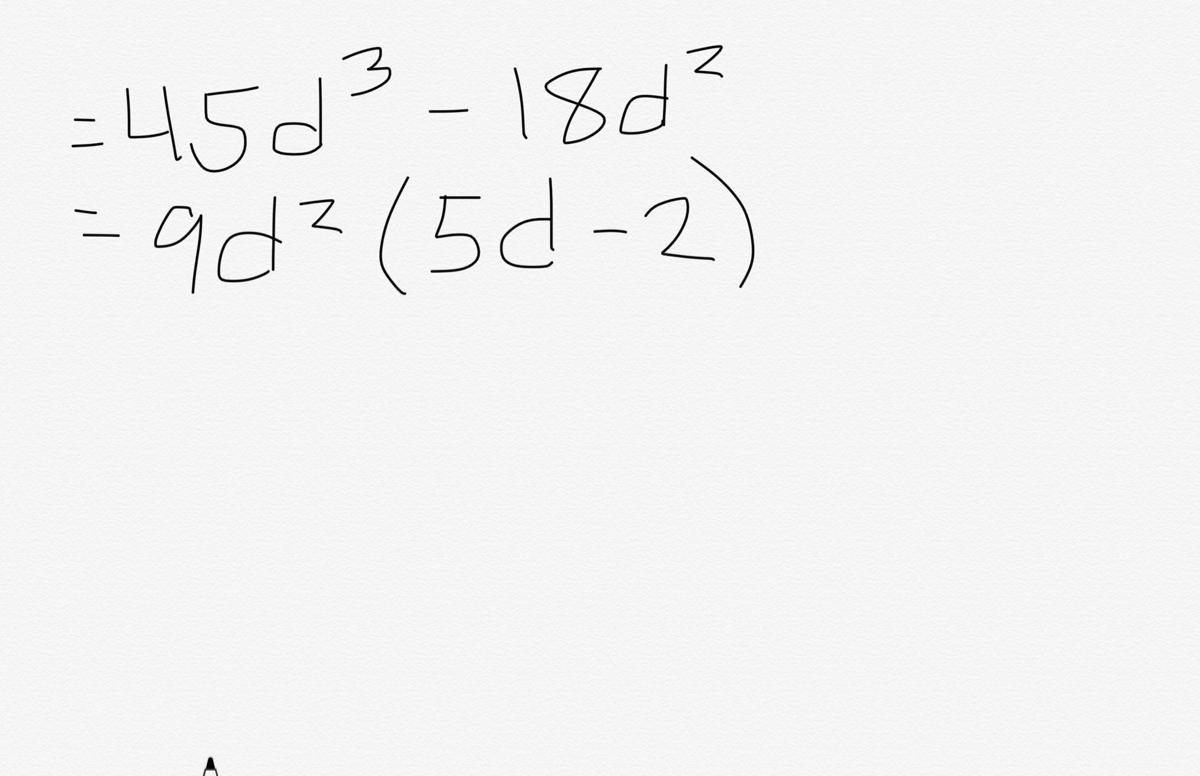 = 45d³ - 18d²
= 9d² (5d - 2)